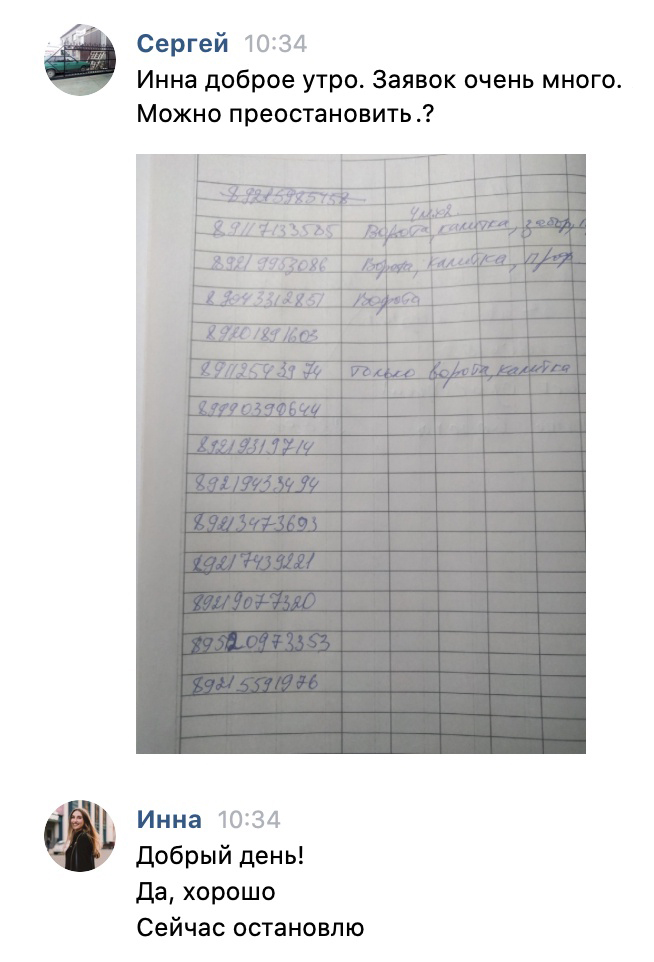 Сергей 10:34
Инна доброе утро. Заявок очень много.
Можно преостановить.?
89215985758
4мх2.
89117133505 Ворота, калитка, забор,
89219953086 Ворота, калитка, проф
89043312851 Ворота
89201891603
89112543974 только ворота, калитка
89990390644
89219319714
89219453494
89213473693
89217439221
89219077320
89520973353
89215591976
Инна 10:34
Добрый день!
Да, хорошо
Сейчас остановлю